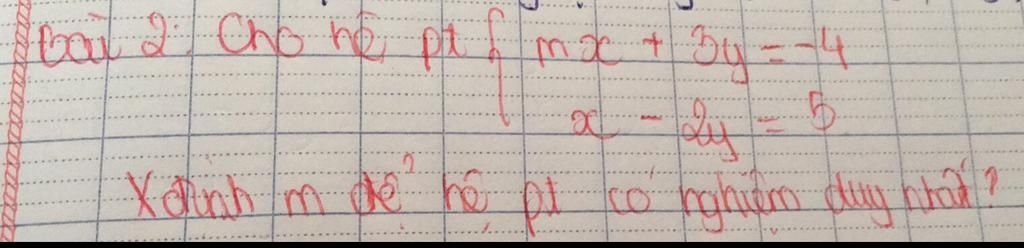 Bài 2: Cho hệ pt { mx + 3y = -4
x - 2y = 5
Xđịnh m để hệ pt có nghiệm duy nhất?